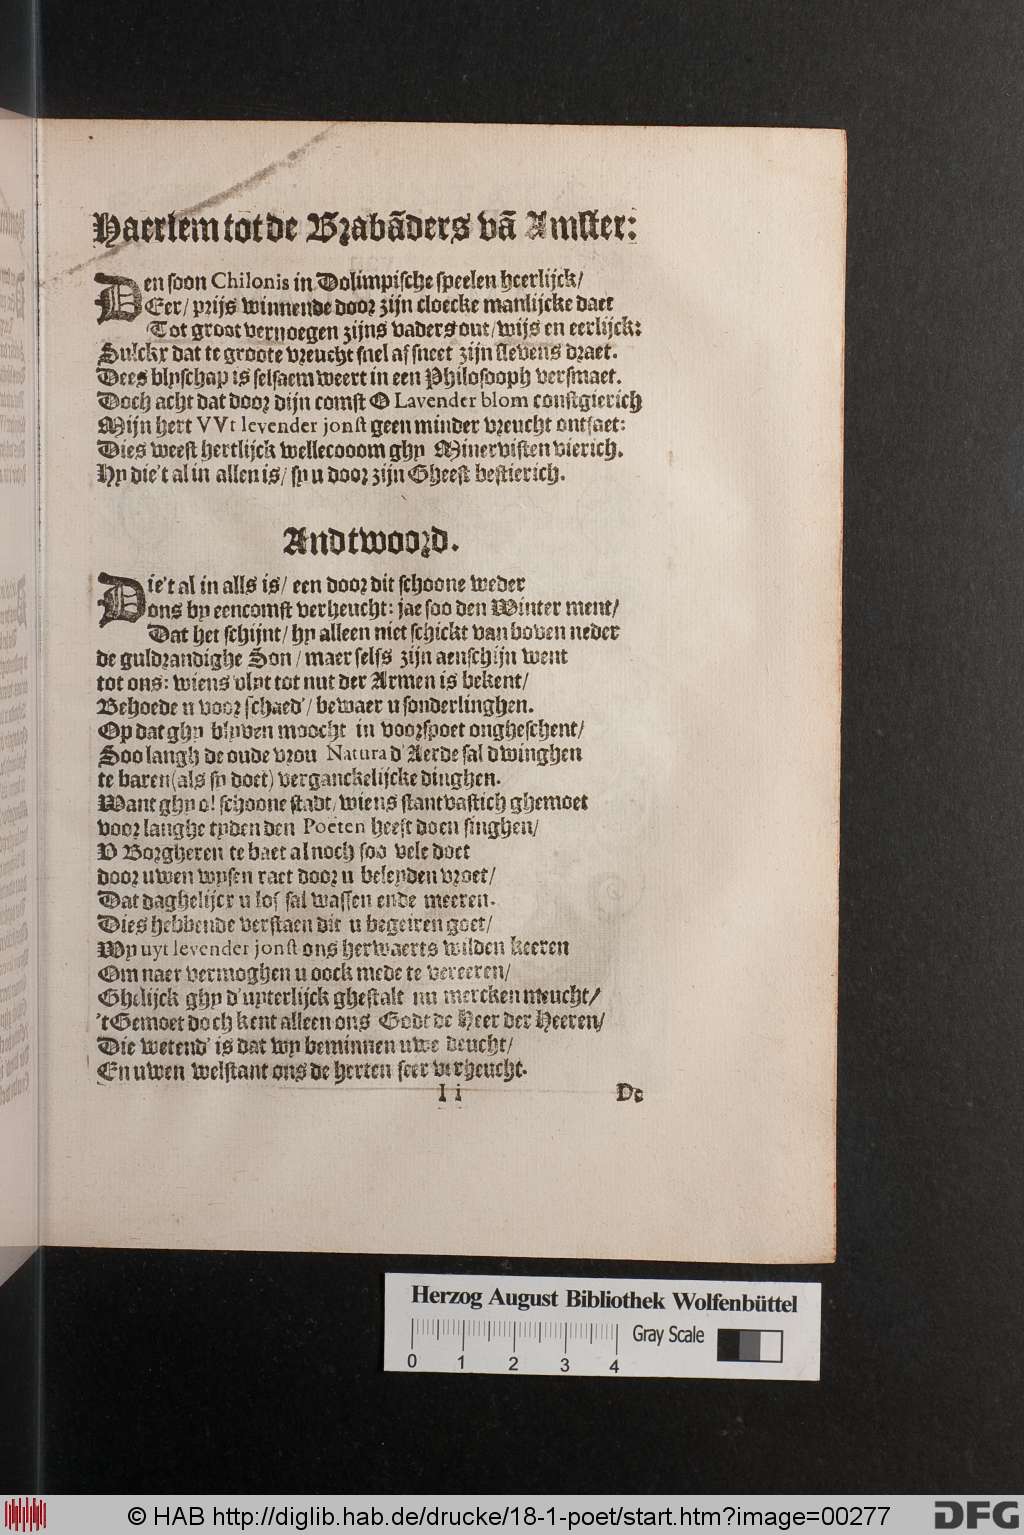 Haerlem tot de Brabãders vã Amster:
Den soon Chilonis in Dolimpische speelen heerlijck/
Eer/ prijs winnende door zijn cloecke manlijcke daet
Tot groot vernoegen zijns vaders out/ wijs en eerlijck:
Sulckx dat te groote vreucht snel af sneet zijn slevens draet.
Dees blyschap is selsaem weert in een Philosooph versmaet.
Doch acht dat door dijn comst O Lavender blom constgierich
Mijn hert VVt levender jonst geen minder vreucht ontfaet:
Dies weest hertlijck wellecooom ghy Minervisten vierich.
Hy die't al in allen is/ sy u door zijn Gheest bestierich.
Andtwoord.
Die't al in alls is/ een door dit schoone weder
ons by eencomst verheucht: jae soo den Winter ment/
Dat het schijnt/ hy alleen niet schickt van boven neder
de guldrandighe Son/ maer selfs zijn aenschijn went
tot ons: wiens vlyt tot nut der Armen is bekent/
Behoede u voor schaed'/ bewaer u sonderlinghen.
Op dat ghy blyven moocht in voorspoet ongheschent/
Soo langh de oude vrou Natura d'Aerde sal dwinghen
te baren (als sy doet) verganckelijcke dinghen.
Want ghy o! schoone stadt/ wiens stantvastich ghemoet
voor langhe tyden den Poëten heeft doen singhen/
V Borgheren te baet al noch soo vele doet
door uwen wysen raet door u beleyden vroet/
Dat daghelijcx u lof sal wassen ende meeren.
Dies hebbende verstaen dit u begeiren goet/
Wy uyt levender jonst ons herwaerts wilden keeren
Om naer vermoghen u oock mede te vereeren/
Ghelijck ghy d'uyterlijck ghestalt nu mercken meucht/
't Gemoet doch kent alleen ons Godt de Heer der Heeren/
Die wetend' is dat wy beminnen uwe deucht/
En uwen welstant ons de herten seer verheucht.
I i De
Herzog August Bibliothek Wolfenbüttel
Gray Scale
0 1 2 3 4
© HAB http://diglib.hab.de/drucke/18-1-poet/start.htm?image=00277
DFG